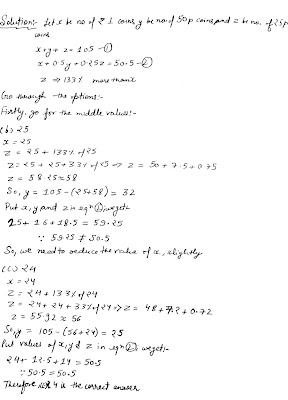 Solution:- Let x be no of ₹ 1 coins, y be no. of 50p coins, and z be no. of 25p
coins
x+y+z = 105 -①
x + 0.5y + 0.25z = 50.5 -②
z → 133% more than x
Go through the options:-
Firstly, go for the middle values:-
(b) 25
x = 25
z = 25 + 133% of 25
z = 25 + 25 + 33% of 25 → z = 50 + 7.5 + 0.75
z = 58.25 ≈ 58
So, y = 105 - (25+58) = 32
Put x, y and z in eqn ②, we get:-
25 + 16 + 18.5 = 59.25
∵ 59.25 ≠ 50.5
So, we need to reduce the value of x, slightly
(c) 24
x = 24
z = 24 + 133% of 24
z = 24 + 24 + 33% of 24 → z = 48 + 7.2 + 0.72
z = 55.92 ≈ 56
So, y = 105 - (56+24) = 25
Put values of x, y & z in eqn ②, we get:-
24 + 12.5 + 14 = 50.5
∵ 50.5 = 50.5
Therefore 4 is the correct answer